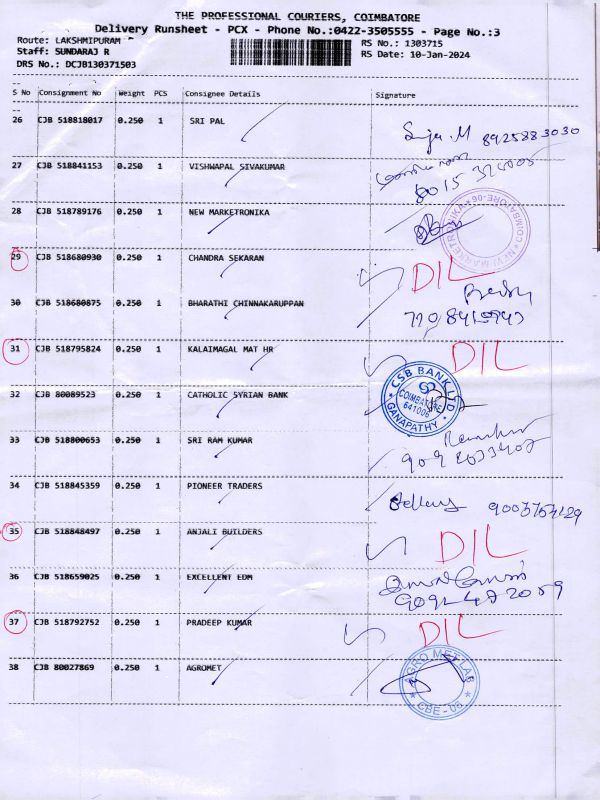 THE PROFESSIONAL COURIERS, COIMBATORE
Delivery Runsheet - PCX - Phone No.:0422-3505555 - Page No.:3
Route: LAKSHMIPURAM
RS No.: 1303715
Staff: SUNDARAJ R
RS Date: 10-Jan-2024
DRS No.: DCJB130371503
S No Consignment No Weight PCS Consignee Details Signature
26 CJB 518818017 0.250 1 SRI PAL
8925883030
27 CJB 518841153 0.250 1 VISHWAPAL SIVAKUMAR
28 CJB 518789176 0.250 1 NEW MARKETRONIKA
NEW MARKETRONIKA COIMBATORE-
29 CJB 518680930 0.250 1 CHANDRA SEKARAN DIL
30 CJB 518680875 0.250 1 BHARATHI CHINNAKARUPPAN
31 CJB 518795824 0.250 1 KALAIMAGAL MAT HR DIL
32 CJB 80089523 0.250 1 CATHOLIC SYRIAN BANK
CSB BANK LTD
COIMBATORE
641006
GANAPATHY
33 CJB 518800653 0.250 1 SRI RAM KUMAR
34 CJB 518845359 0.250 1 PIONEER TRADERS
35 CJB 518848497 0.250 1 ANJALI BUILDERS DIL
36 CJB 518659025 0.250 1 EXCELLENT EDM
37 CJB 518792752 0.250 1 PRADEEP KUMAR DIL
38 CJB 80027869 0.250 1 AGROMET
AGRO MET LAB
CBE - 06